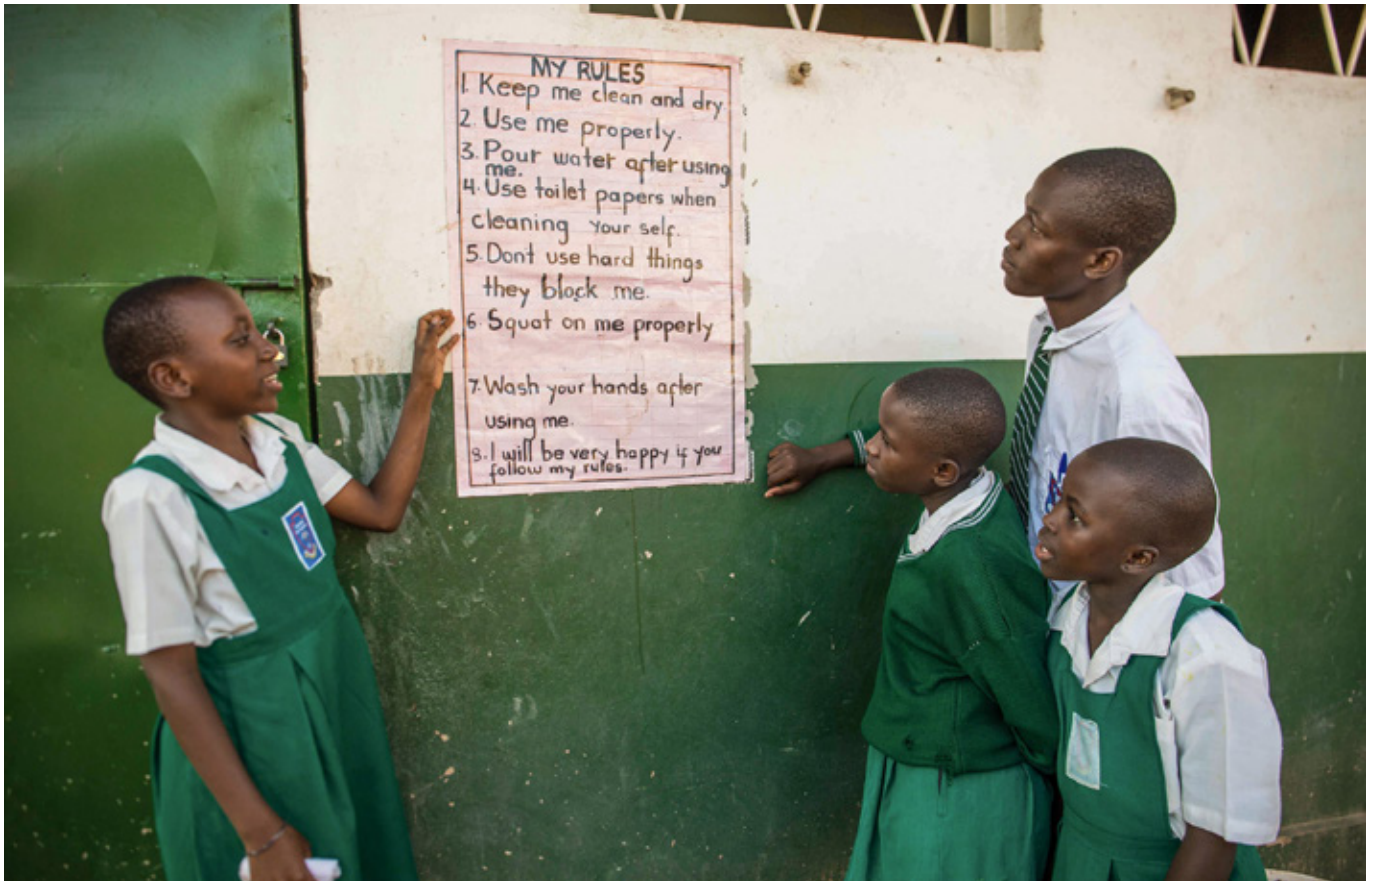 MY RULES
1. Keep me clean and dry
2. Use me properly.
3. Pour water after using
me.
4. Use toilet papers when
cleaning your self.
5. Dont use hard things
they block me.
6. Squat on me properly
7. Wash your hands after
using me.
8. I will be very happy if you
follow my rules.